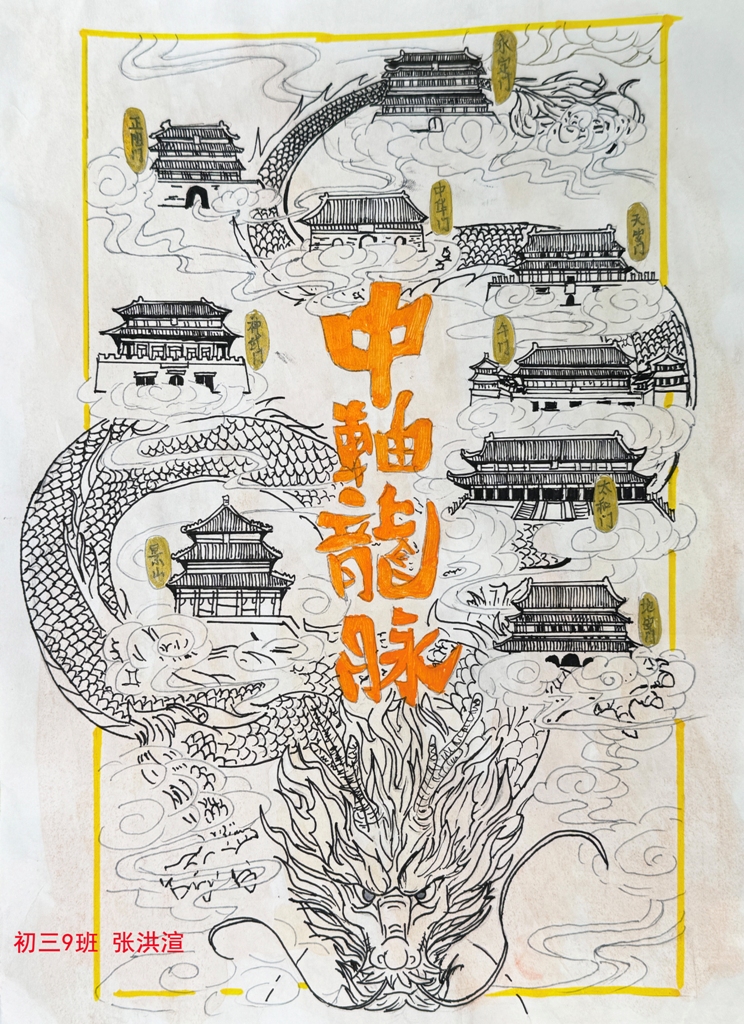 永定门
正阳门
中华门
天安门
中軸龍脉
神武门
午门
太和门
景山
地安门
初三9班 张洪渲